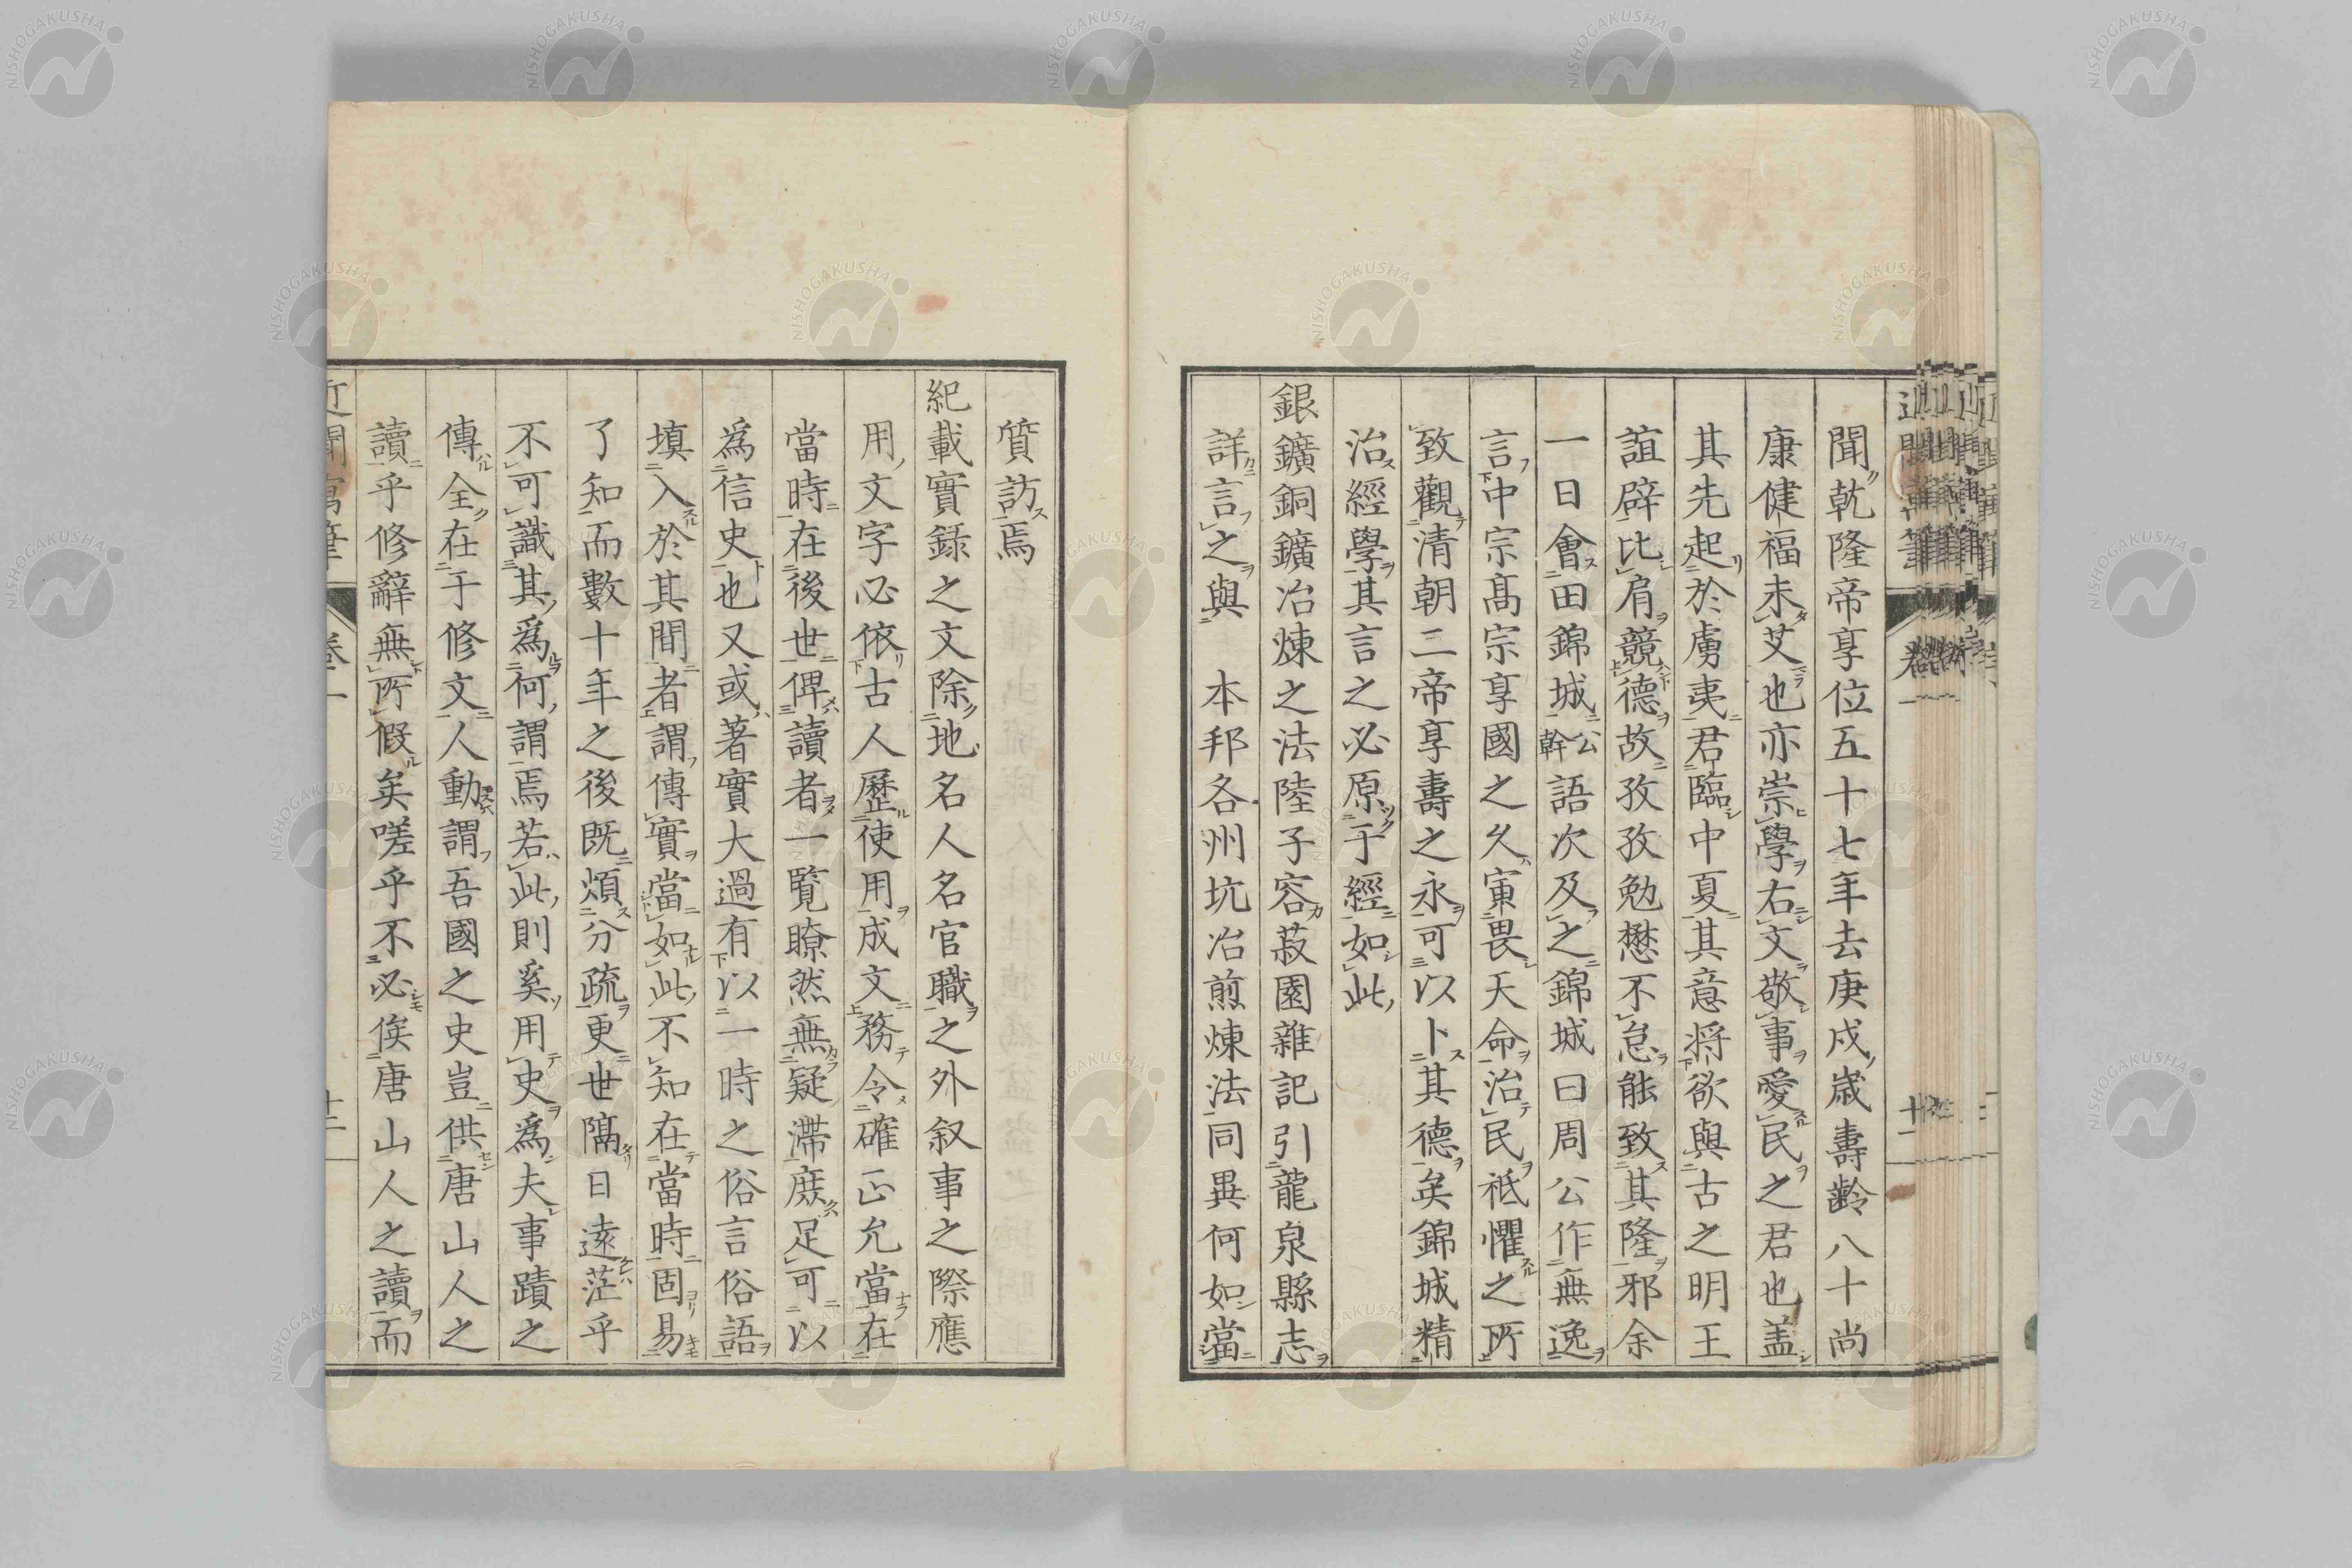 聞乾隆帝享位五十七年去庚戍歳壽齡八十尚
康健福未艾也亦崇學右文敬事愛民之君也盖
其先起於虜夷君臨中夏其意将欲與古之明王
誼辟比肩競德故孜孜勉懋不怠能致其隆邪余
一日會田錦城公幹語次及之錦城曰周公作無逸
言中宗髙宗享國之久寅畏天命治民祗懼之所
致觀清朝二帝享壽之永可以卜其德矣錦城精
治經學其言之必原于經如此
銀鑛銅鑛冶煉之法陸子容菽園雜記引龍泉縣志
詳言之與　本邦各州坑冶煎煉法同異何如當
質訪焉
紀載實錄之文除地名人名官職之外叙事之際應
用文字必依古人歷使用成文務令確正允當在
當時在後世俾讀者一覽瞭然無疑滯庶足可以
為信史也又或著實大過有以一時之俗言俗語
填入於其間者謂傳實當如此不知在當時固易
了知而數十年之後既煩分疏更世隔日遠茫乎
不可識其為何謂焉若此則奚用史為夫事蹟之
傳全在于修文人動謂吾國之史豈供唐山人之
讀乎修辭無所假矣嗟乎不必俟唐山人之讀而
NISHOGAKUSHA